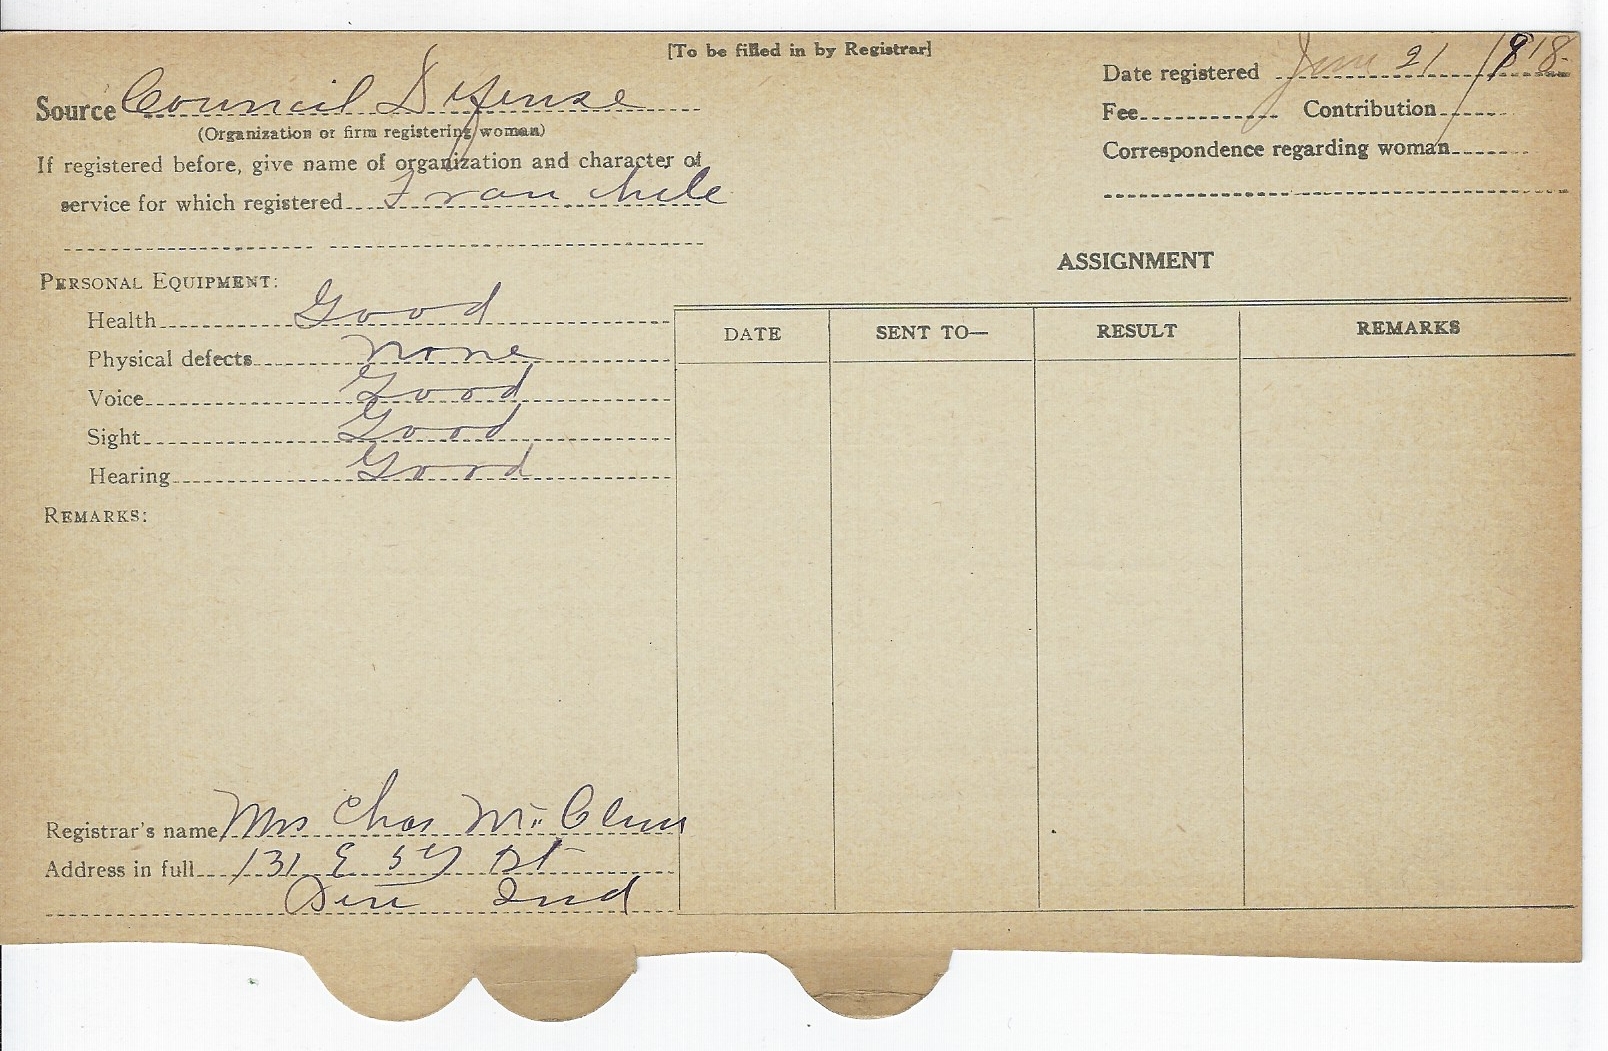 [To be filled in by Registrar]
Source Council Defense
(Organization or firm registering woman)
If registered before, give name of organization and character of
service for which registered Franchise
PERSONAL EQUIPMENT:
Health Good
Physical defects none
Voice Good
Sight Good
Hearing Good
REMARKS:
Registrar's name Mrs Chas
Address in full 131 E St
Ind
Date registered 21
Fee Contribution
Correspondence regarding woman
ASSIGNMENT
DATE SENT TO— RESULT REMARKS